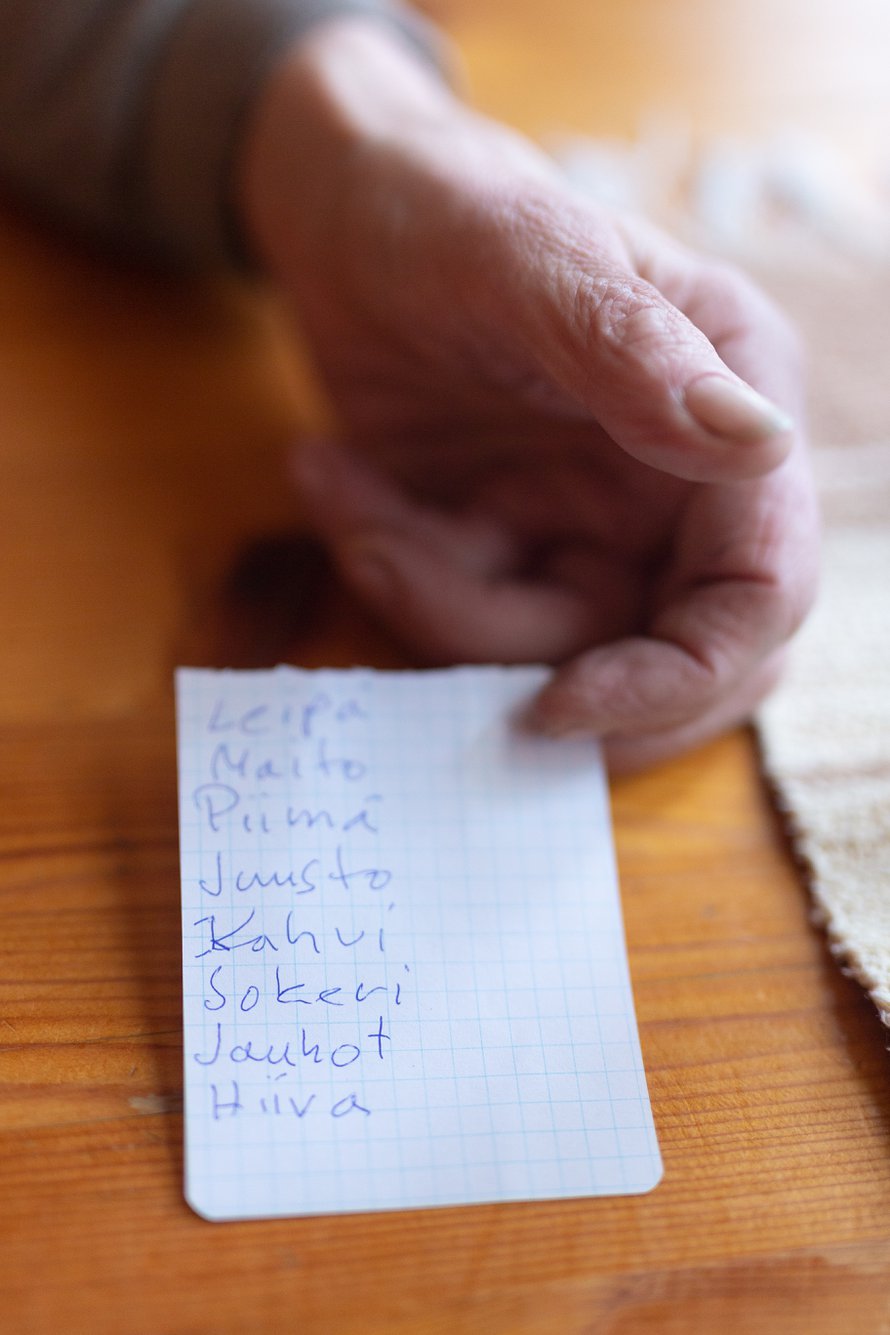 Leipä
Maito
Piimä
Juusto
Kahvi
Sokeri
Jauhot
Hiiva